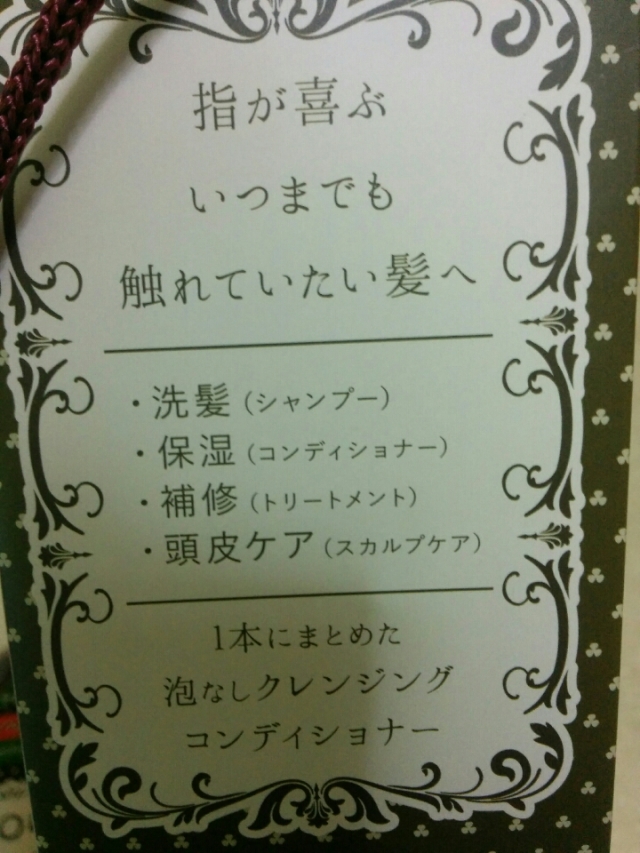 指が喜ぶ
いつまでも
触れていたい髪へ
・洗髪（シャンプー）
・保湿（コンディショナー）
・補修（トリートメント）
・頭皮ケア（スカルプケア）
1本にまとめた
泡なしクレンジング
コンディショナー